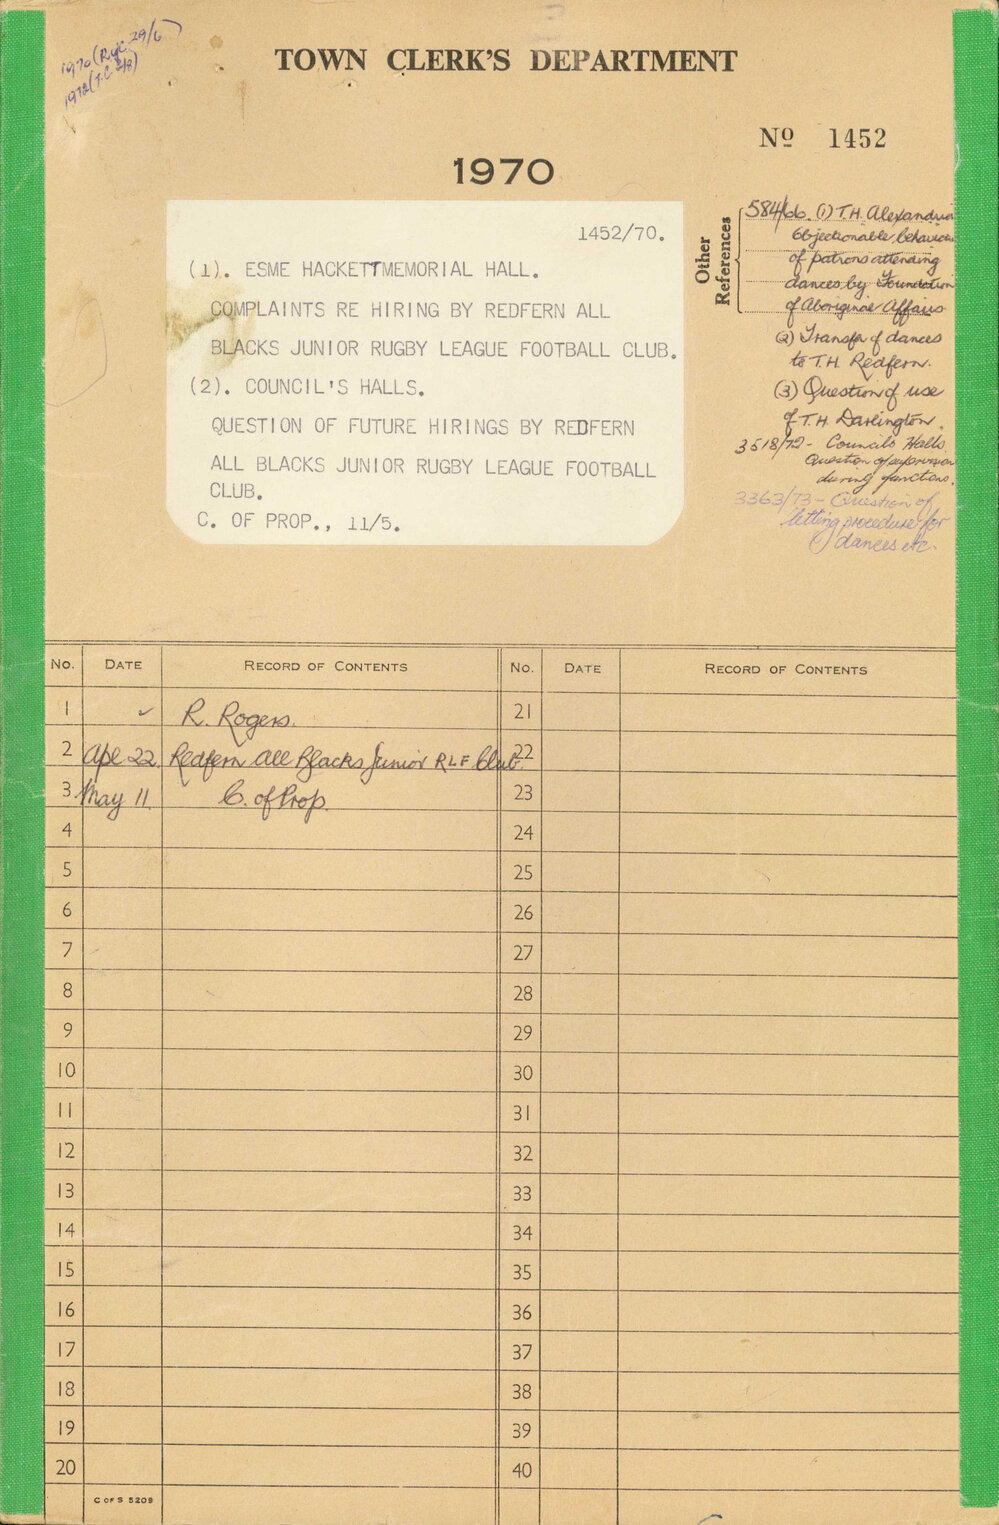 1970 (Rge 29/6)
1972 (T.C 2/8)
TOWN CLERK'S DEPARTMENT
Nº 1452
1970
1452/70.
(1). ESME HACKETTMEMORIAL HALL.
COMPLAINTS RE HIRING BY REDFERN ALL
BLACKS JUNIOR RUGBY LEAGUE FOOTBALL CLUB.
(2). COUNCIL'S HALLS.
QUESTION OF FUTURE HIRINGS BY REDFERN
ALL BLACKS JUNIOR RUGBY LEAGUE FOOTBALL
CLUB.
C. OF PROP., 11/5.
Other
References
584/66. (1) T.H. Alexandria
Objectionable behaviour
of patrons attending
dances by Foundation
of Aboriginal Affairs
(2) Transfer of dances
to T.H. Redfern.
(3) Question of use
of T.H. Darlington.
3518/72 - Councils Halls.
Question of supervision
during functions.
3363/73 - Question of
letting procedure for
dances etc.
No. DATE RECORD OF CONTENTS No. DATE RECORD OF CONTENTS
1 ✓ R. Rogers. 21
2 Apl 22. Redfern All Blacks Junior RLF Club. 22
3. May 11. C. of Prop. 23
4 24
5 25
6 26
7 27
8 28
9 29
10 30
11 31
12 32
13 33
14 34
15 35
16 36
17 37
18 38
19 39
20 40
C OF S 5209